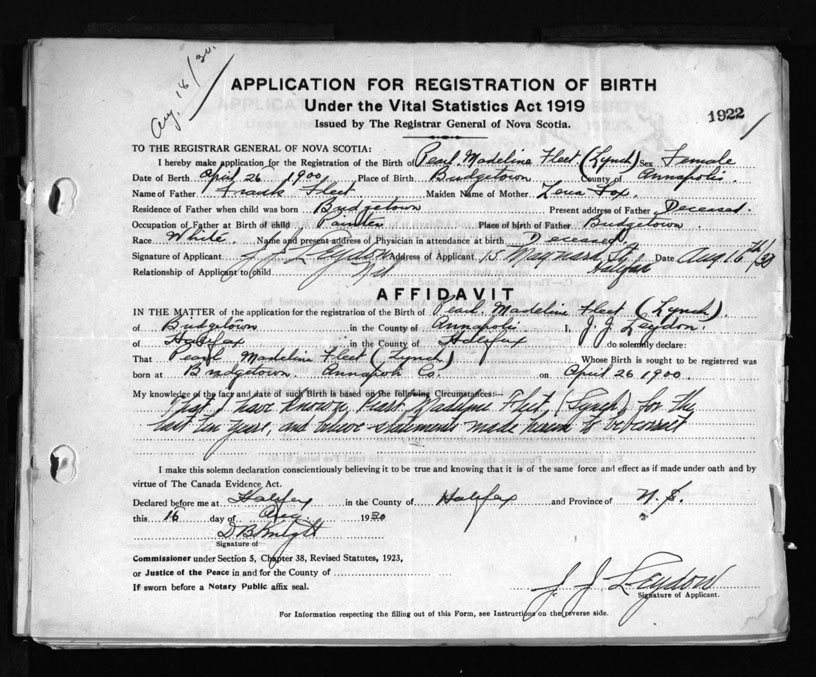 Aug. 18/30.
APPLICATION FOR REGISTRATION OF BIRTH
Under the Vital Statistics Act 1919
Issued by The Registrar General of Nova Scotia.
1922
TO THE REGISTRAR GENERAL OF NOVA SCOTIA:
I hereby make application for the Registration of the Birth of Pearl Madeline Fleet (Lynch) Sex Female
Date of Birth April 26 1900. Place of Birth Bridgetown County of Annapolis.
Name of Father Frank Fleet Maiden Name of Mother Fox.
Residence of Father when child was born Bridgetown Present address of Father Deceased
Occupation of Father at Birth of child Painter Place of birth of Father Bridgetown.
Race White. Name and present address of Physician in attendance at birth Deceased.
Signature of Applicant J J Leydon Address of Applicant 15 Maynard St Halifax Date Aug. 16th/30
Relationship of Applicant to child Nil
AFFIDAVIT
IN THE MATTER of the application for the registration of the Birth of Pearl Madeline Fleet (Lynch).
of Bridgetown in the County of Annapolis I, J. J. Leydon.
of Halifax in the County of Halifax do solemnly declare:
That Pearl Madeline Fleet (Lynch) Whose Birth is sought to be registered was
born at Bridgetown Annapolis Co. on April 26 1900.
My knowledge of the fact and date of such Birth is based on the following Circumstances:—
That I have known, Pearl Madeline Fleet, (Lynch) for the
last ten years, and believe statements made herein to be correct
I make this solemn declaration conscientiously believing it to be true and knowing that it is of the same force and effect as if made under oath and by
virtue of The Canada Evidence Act.
Declared before me at Halifax in the County of Halifax and Province of N. S.
this 16 day of Aug 1930
D B Knight
Signature of
Commissioner under Section 5, Chapter 38, Revised Statutes, 1923,
or Justice of the Peace in and for the County of
If sworn before a Notary Public affix seal.
J. J. Leydon
Signature of Applicant.
For Information respecting the filling out of this Form, see Instructions on the reverse side.